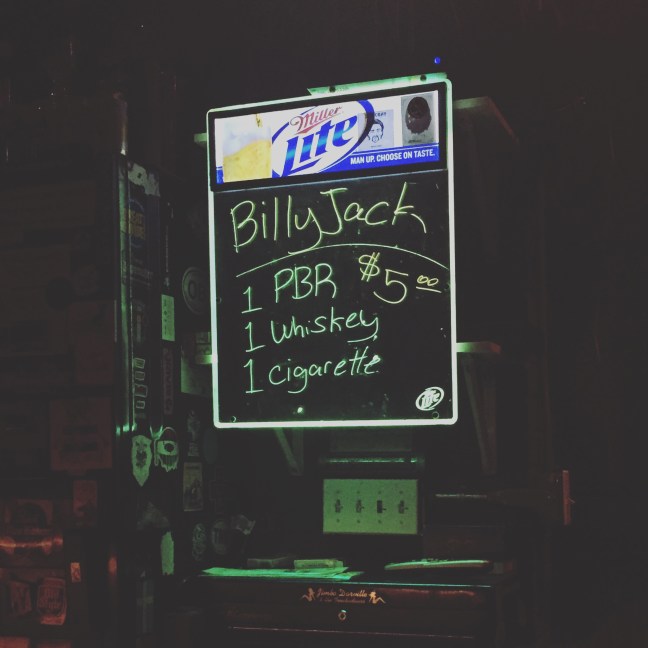 Miller
Lite
MAN UP. CHOOSE ON TASTE.
BillyJack
1 PBR $5.00
1 Whiskey
1 cigarette
Lite